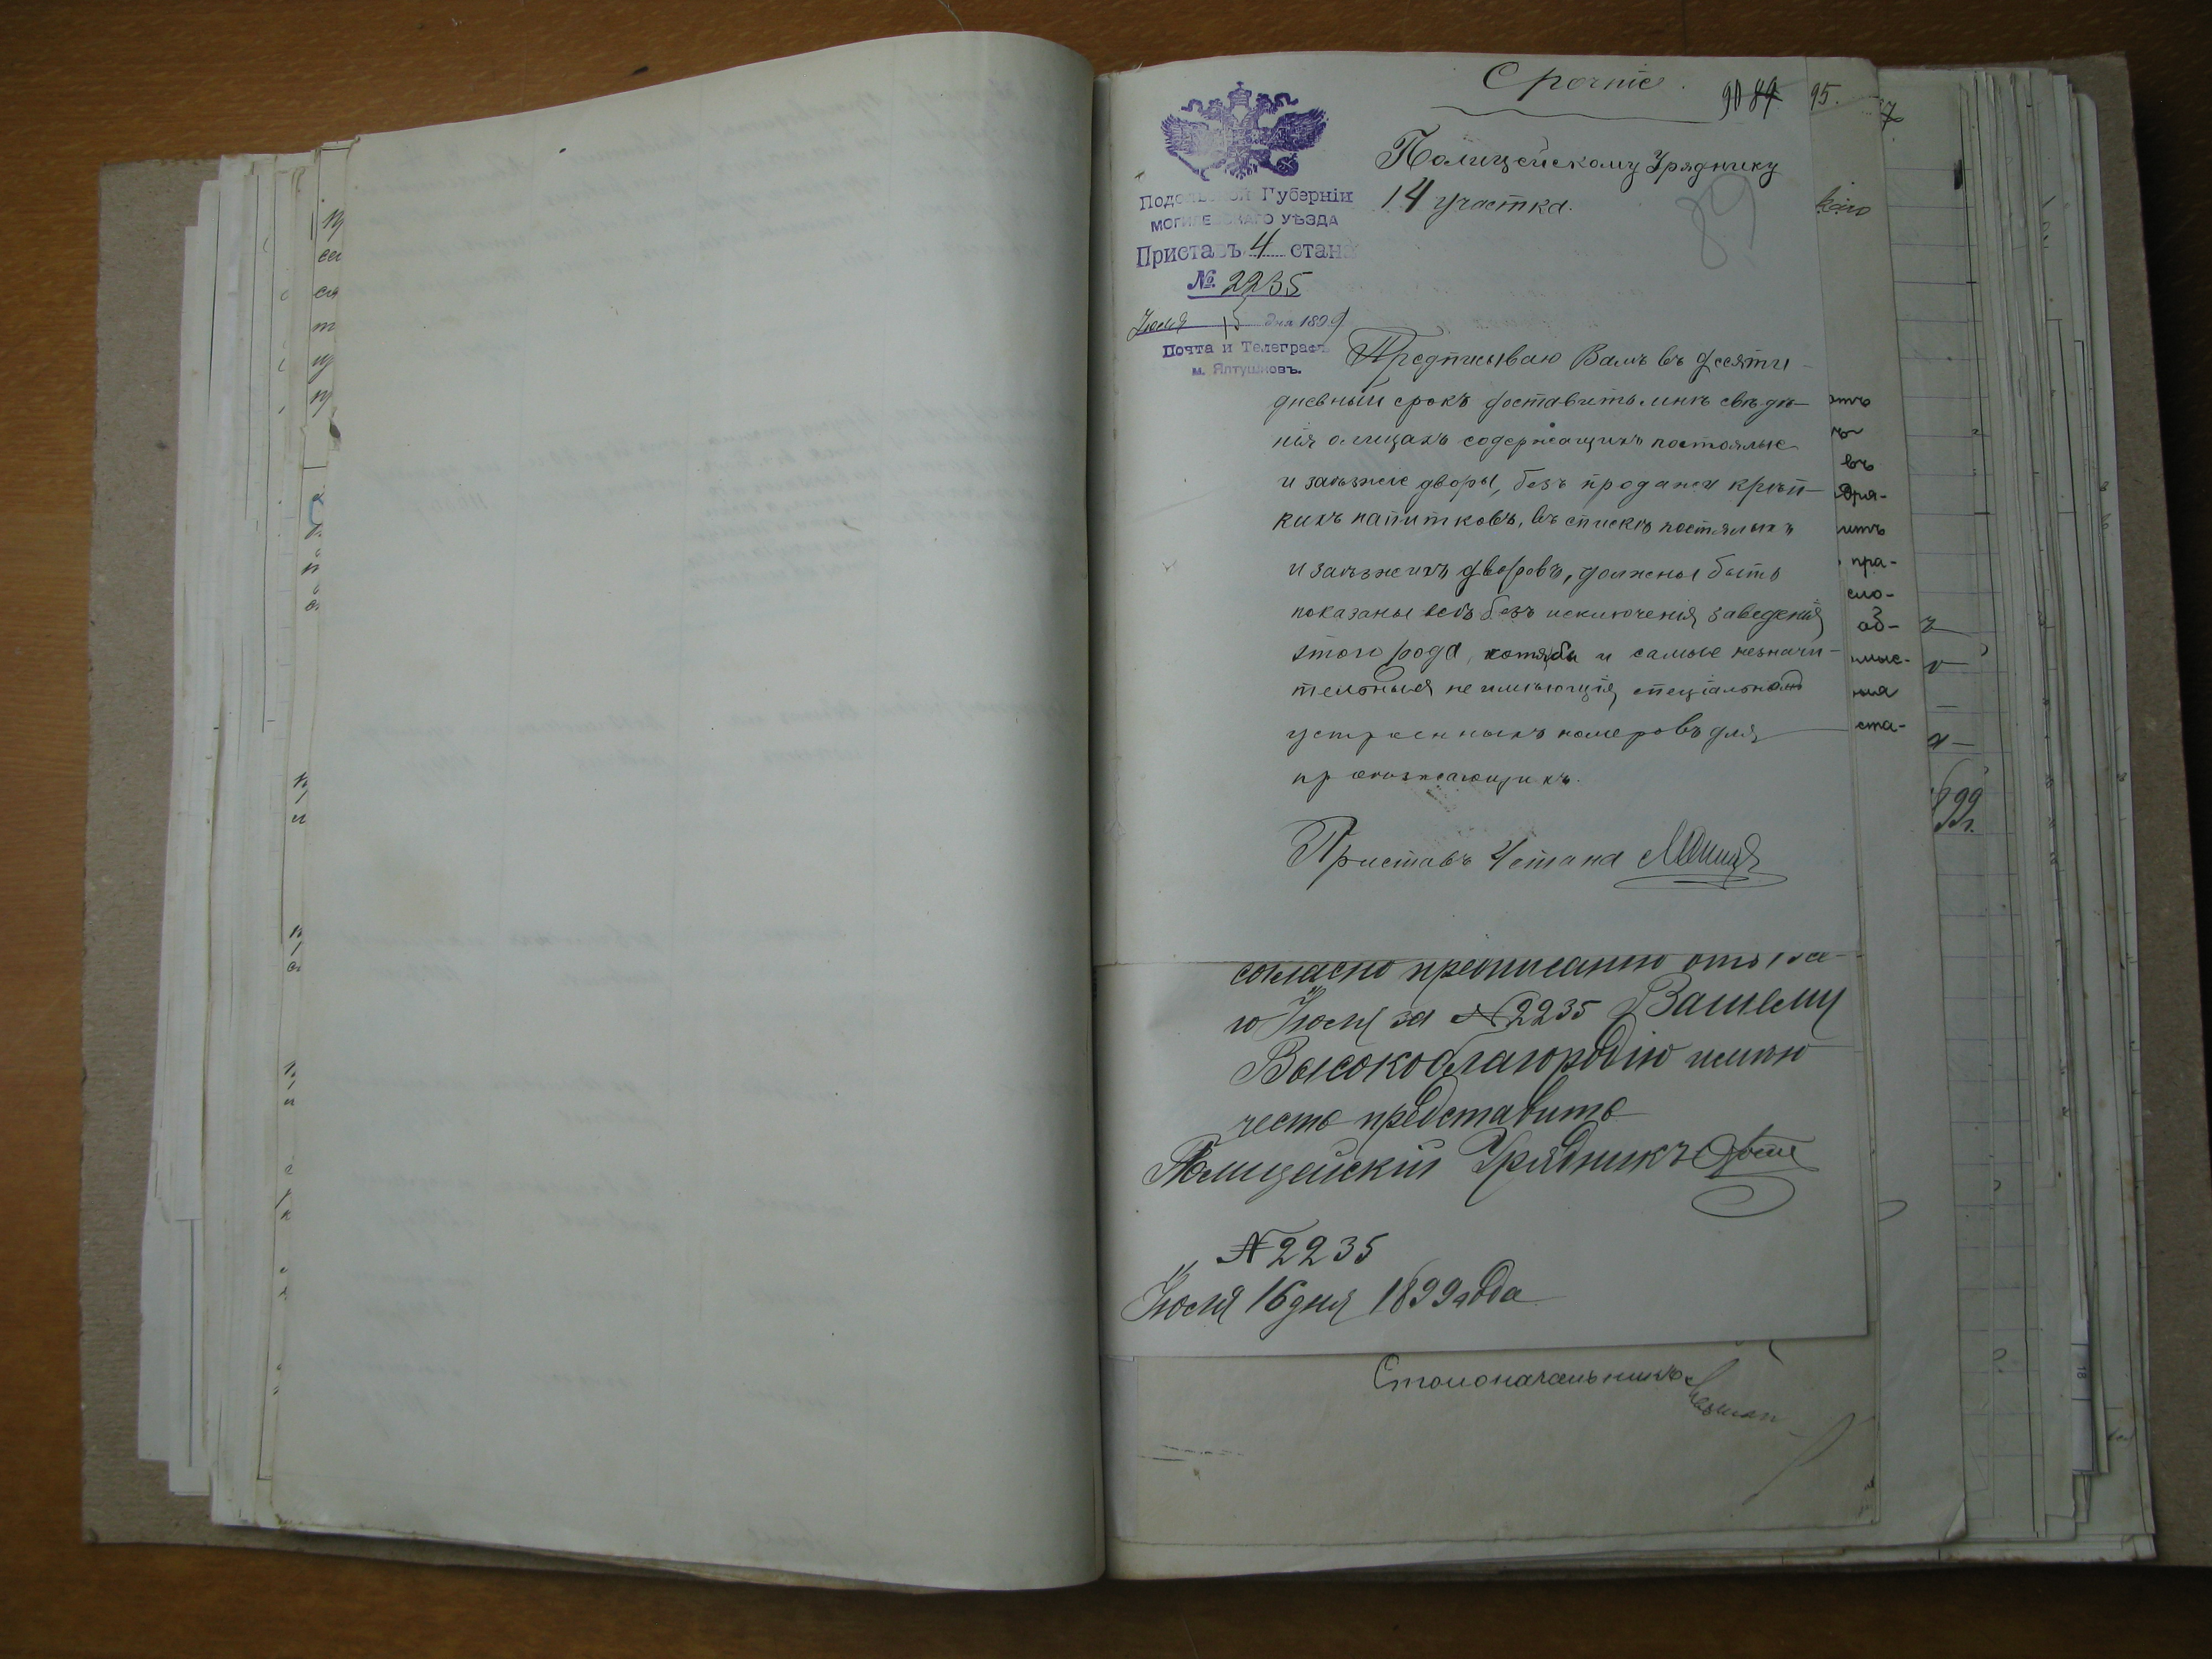 Срочніе.
90 84 95.
Подольской Губерніи
МОГИЛЕВСКАГО УѢЗДА
Приставъ 4 стана
№ 2235
Іюля 15 дня 1899
Почта и Телеграфъ
м. Ялтушковъ.
Полицейскому Уряднику
14 участка.
89
Предписываю Вамъ въ десяти
дневный срокъ доставить мнѣ свѣдѣ-
нія о лицахъ содержащихъ постоялые
и заѣзжіе дворы, безъ продажи крѣп-
кихъ напитковъ, въ спискѣ постялыхъ
и заѣзжихъ дворовъ, должены быть
показаны всѣ безъ исключенія заведенія
этого рода, хотя бы и самые незначи-
тельныя не имѣющія спеціально
устроенныхъ номеровъ для
проѣзжающихъ.
Приставъ 4 стана
согласно предписанію отъ
го Іюля за № 2235 Вашему
Высокоблагородію имѣю
честь представить
Полицейскій Урядникъ
№ 2235
Іюля 16 дня 1899 года
Столоначальникъ
въ
Ядря-
пра-
сло-
об-
ста-
899